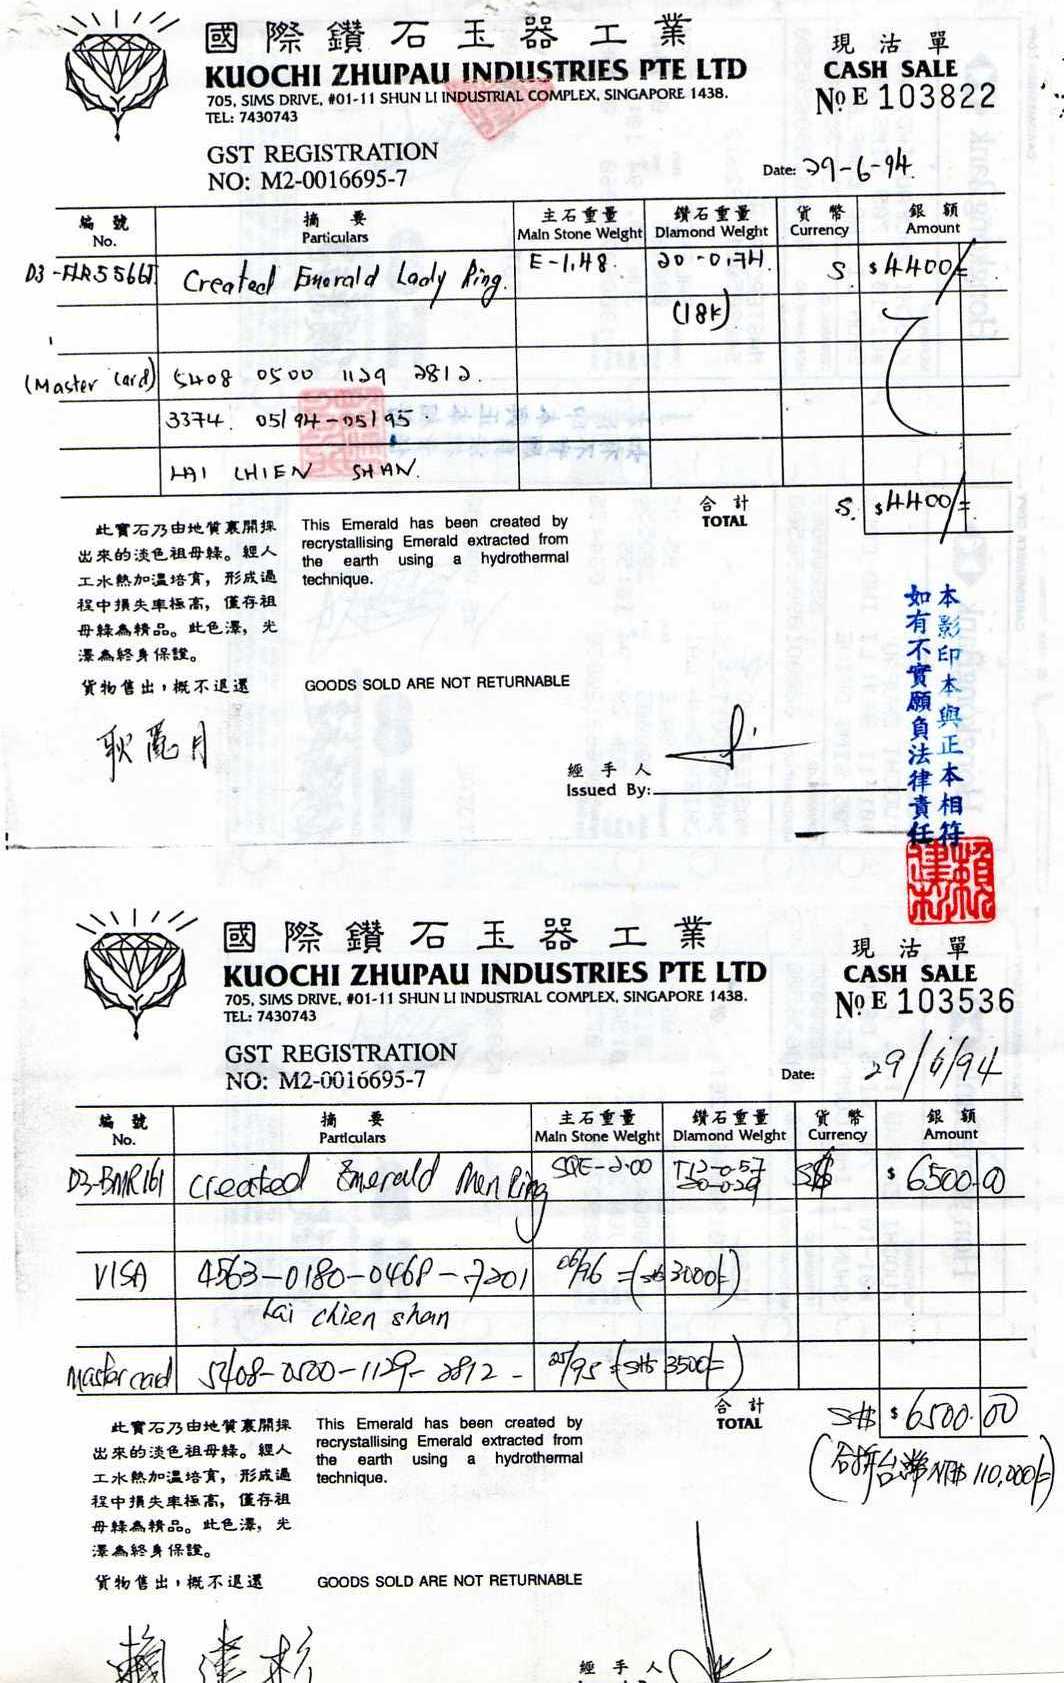 國際鑽石玉器工業
KUOCHI ZHUPAU INDUSTRIES PTE LTD
705, SIMS DRIVE, #01-11 SHUN LI INDUSTRIAL COMPLEX, SINGAPORE 1438.
TEL: 7430743
現沽單
CASH SALE
No E 103822
GST REGISTRATION
NO: M2-0016695-7
Date: 29-6-94.
編號 摘要 主石重量 鑽石重量 貨幣 銀額
No. Particulars Main Stone Weight Diamond Weight Currency Amount
Created Emerald Lady Ring. E-1.48. 20-0.74. S. $4400/=
(18K)
(Master Card) 5408 0500 1129 2812.
3374. 05/94-05/95.
LAI CHIEN SHAN.
合計
TOTAL S. $4400/=
此寶石乃由地質裏開採
出來的淡色祖母綠。經人
工水熱加溫培育，形成過
程中損失率極高，僅存祖
母綠為精品。此色澤，光
澤為終身保證。
This Emerald has been created by
recrystallising Emerald extracted from
the earth using a hydrothermal
technique.
貨物售出，概不退還 GOODS SOLD ARE NOT RETURNABLE
經手人
Issued By:
本影印本與正本相符
如有不實願負法律責任
賴建杉
國際鑽石玉器工業
KUOCHI ZHUPAU INDUSTRIES PTE LTD
705, SIMS DRIVE, #01-11 SHUN LI INDUSTRIAL COMPLEX, SINGAPORE 1438.
TEL: 7430743
現沽單
CASH SALE
No E 103536
GST REGISTRATION
NO: M2-0016695-7
Date: 29/6/94
編號 摘要 主石重量 鑽石重量 貨幣 銀額
No. Particulars Main Stone Weight Diamond Weight Currency Amount
D3-BMR161 Created Emerald Men Ring SQE-2.00 T12-0.57 S$ $6500.00
VISA 4563-0180-0468-7201 06/96 = (S$ 3000/=)
Lai Chien Shan
Master card 5408-0500-1129-2812 - 05/95 = (S$ 3500/=)
合計
TOTAL S$ $6500.00
(合折台幣NT$ 110,000/=)
此寶石乃由地質裏開採
出來的淡色祖母綠。經人
工水熱加溫培育，形成過
程中損失率極高，僅存祖
母綠為精品。此色澤，光
澤為終身保證。
This Emerald has been created by
recrystallising Emerald extracted from
the earth using a hydrothermal
technique.
貨物售出，概不退還 GOODS SOLD ARE NOT RETURNABLE
賴建杉
經手人